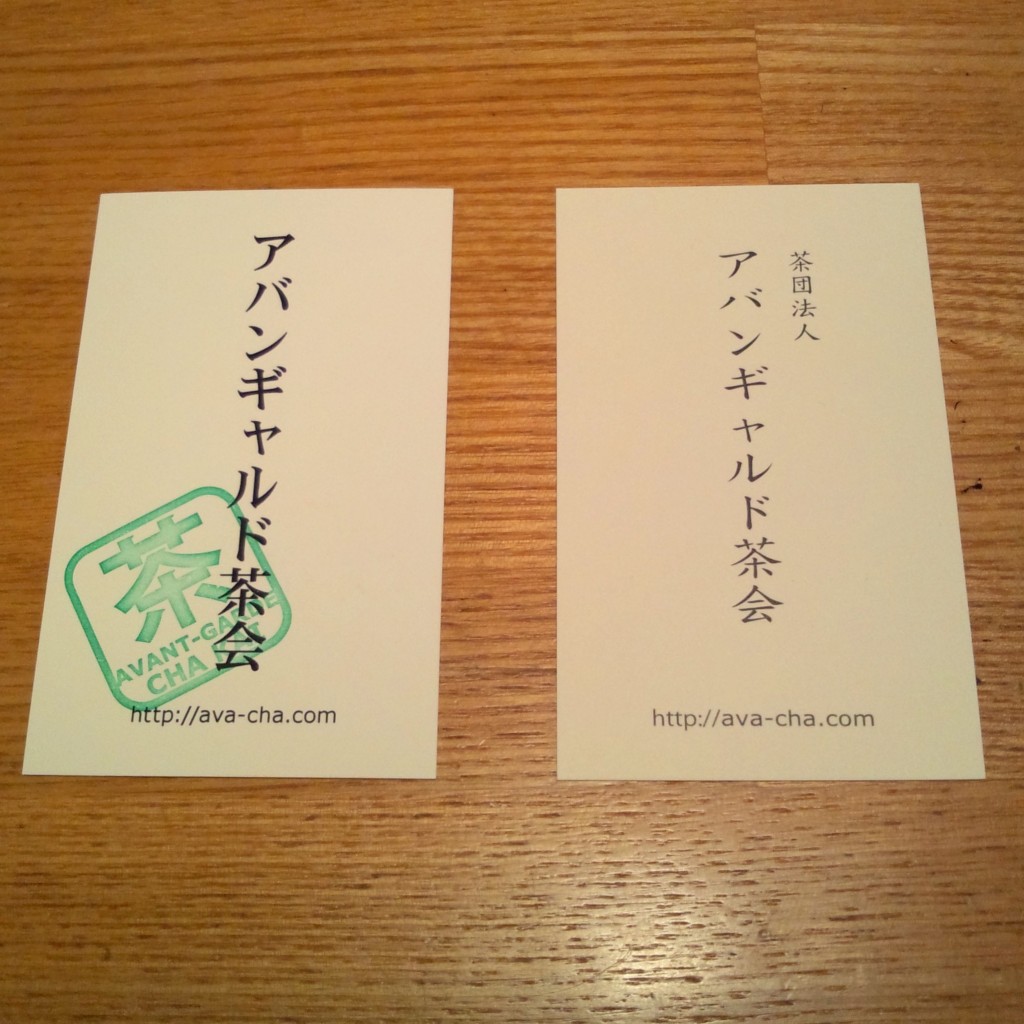 アバンギャルド茶会
茶
AVANT-GARDE
CHA
http://ava-cha.com
茶団法人
アバンギャルド茶会
http://ava-cha.com